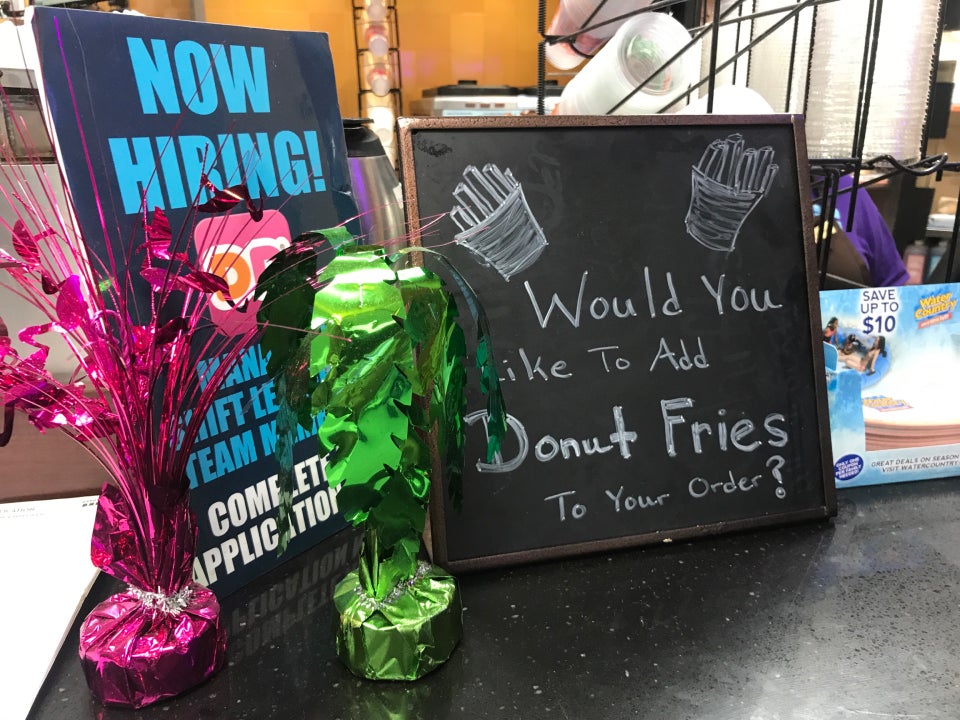 NOW
HIRING!
SHIFT LE
TEAM
COMPLETE
APPLICATION
Would You
Like To Add
Donut Fries
To Your Order?
SAVE
UP TO
$10
Water
Country
GREAT DEALS ON SEASON
VISIT WATERCOUNTRY